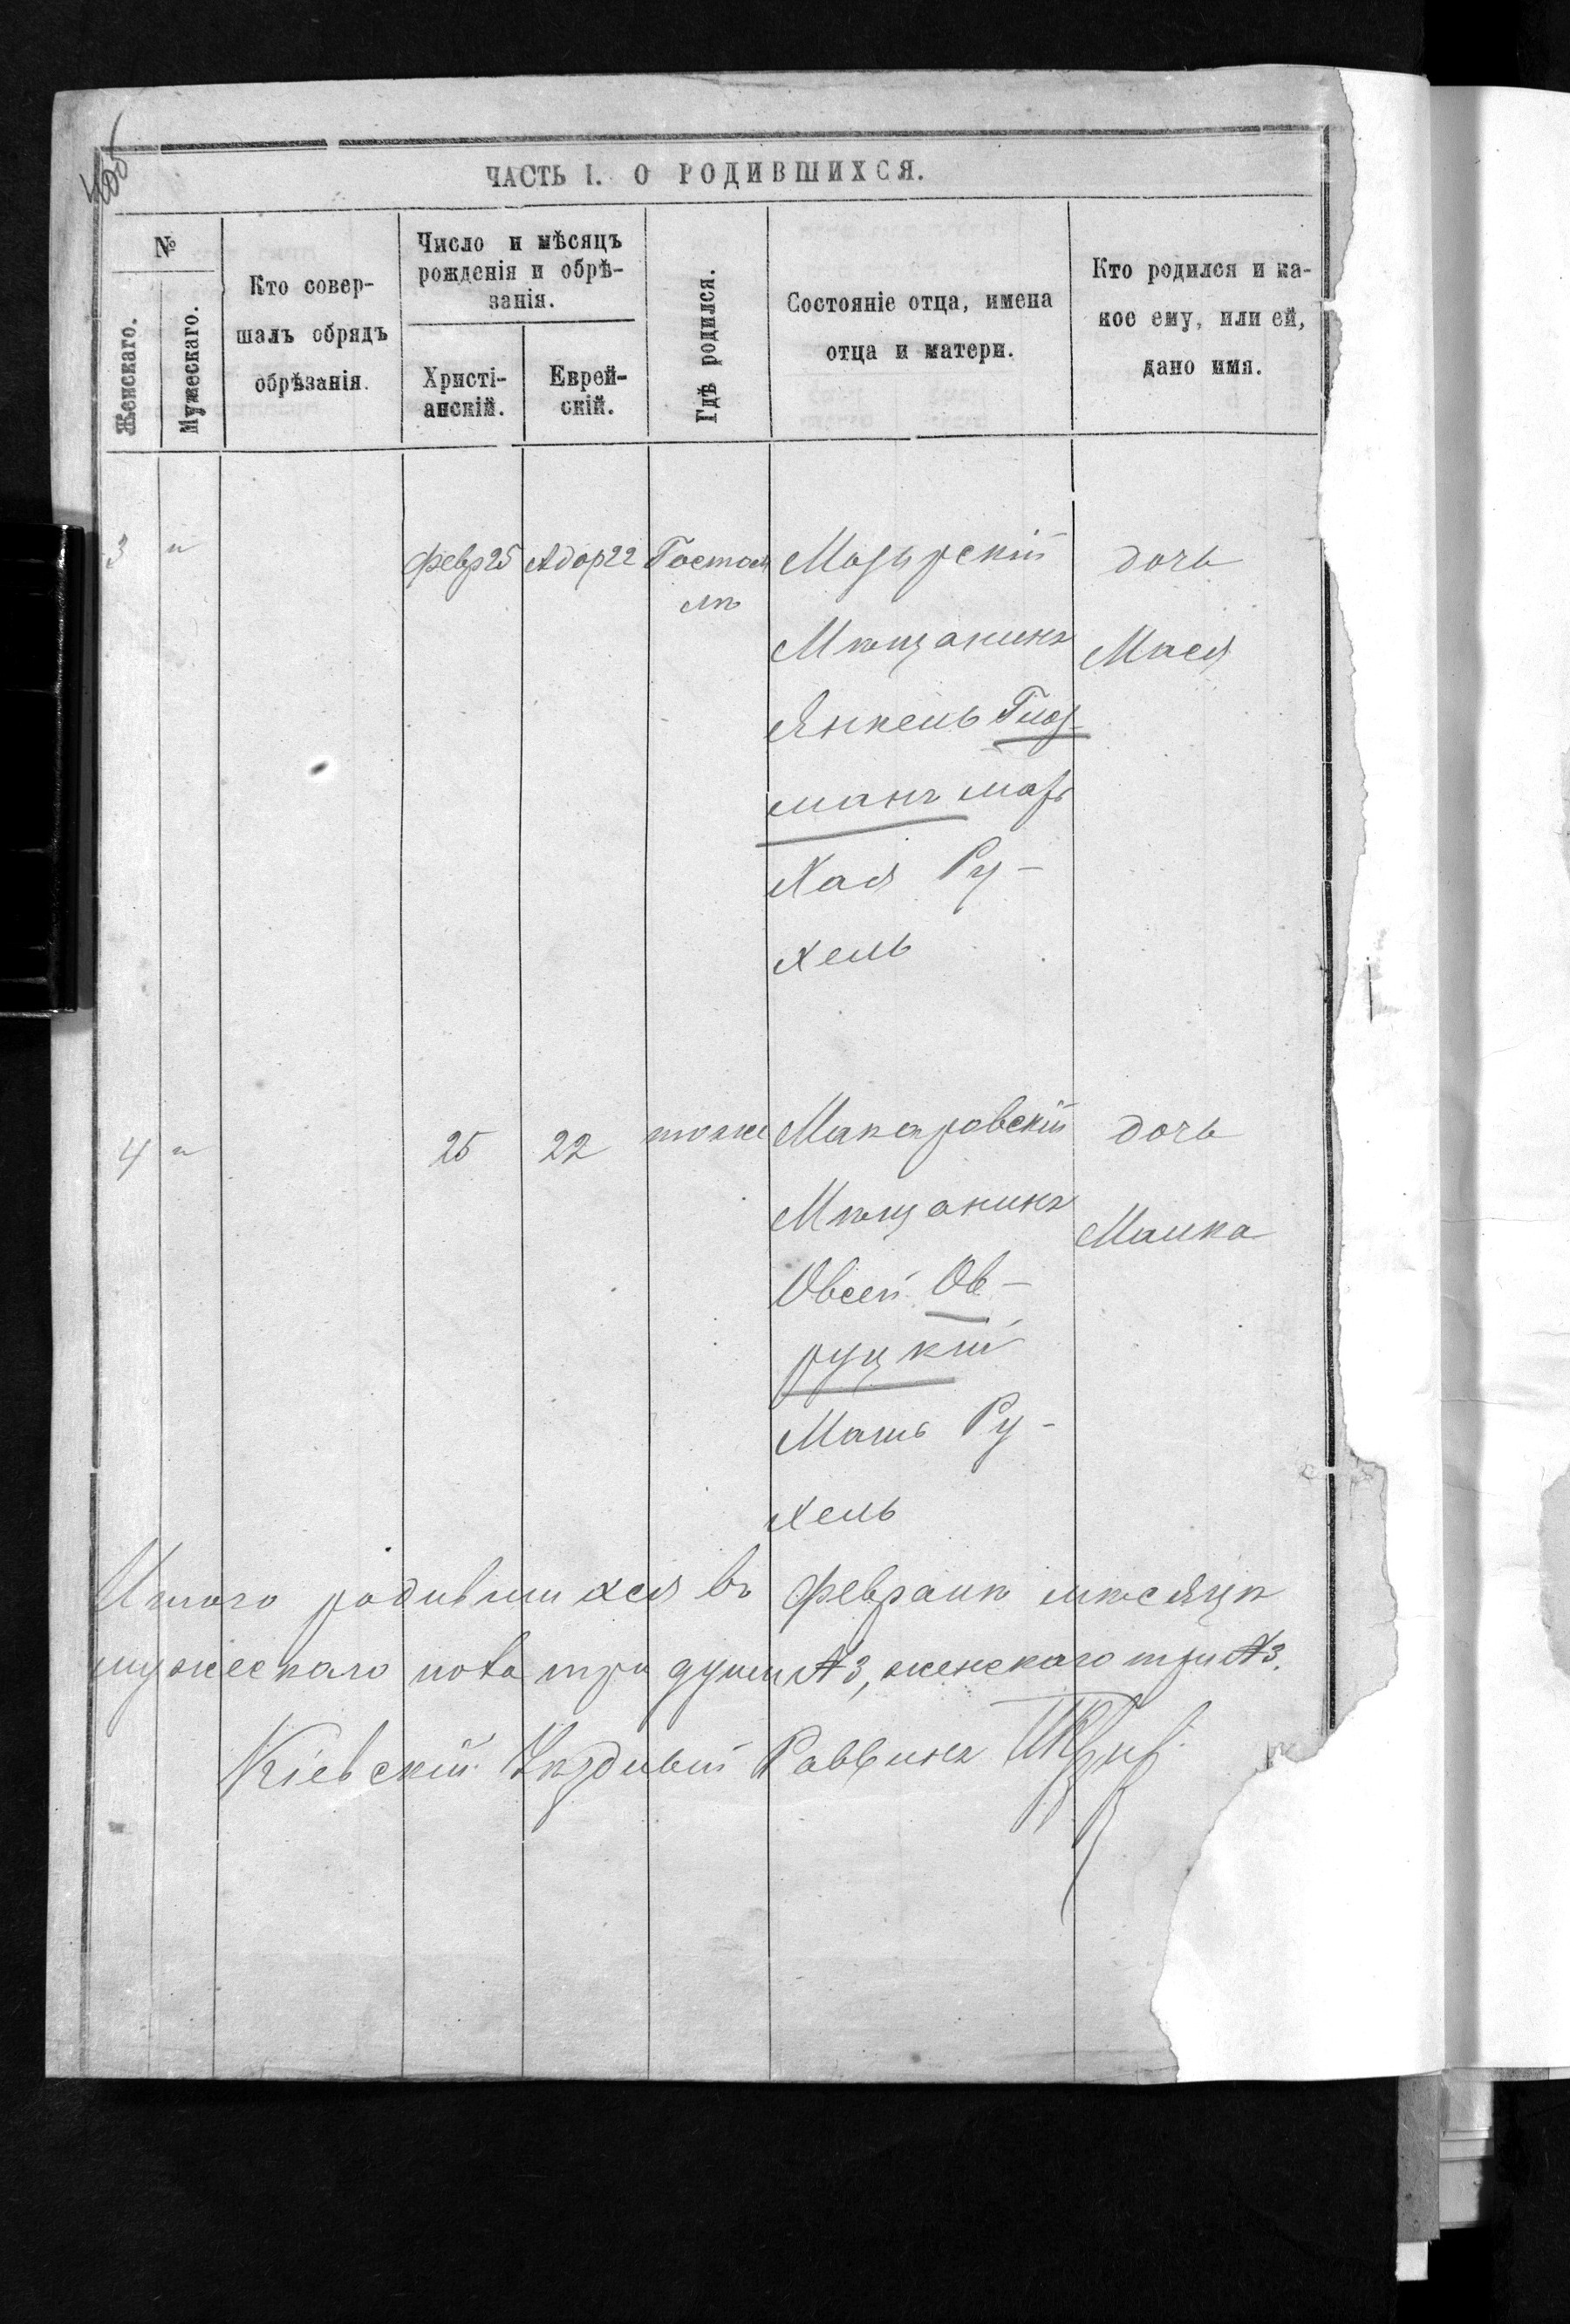 ЧАСТЬ I. О РОДИВШИХСЯ.
№
Женскаго.
Мужескаго.
Кто совер-
шалъ обрядъ
обрѣзанія.
Число и мѣсяцъ
рожденія и обрѣ-
занія.
Христі-
анскій.
Еврей-
скій.
Гдѣ родился.
Состояніе отца, имена
отца и матери.
Кто родился и ка-
кое ему, или ей,
дано имя.
3 " Февр 25 Адор 22 Гостом
лѣ
Мозырскій
Мѣщанинъ
Янкель Глоз-
манъ мать
Хая Ру-
хель
дочь
Мася
4 " 25 22 тоже
Макаровскій
Мѣщанинъ
Овсей Ов-
руцкій
Мать Ру-
хель
дочь
Малка
Итого родившихся въ февралѣ мѣсяцѣ
мужескаго пола три души № 3, женскаго три № 3.
Кіевскій Уѣздный Раввинъ